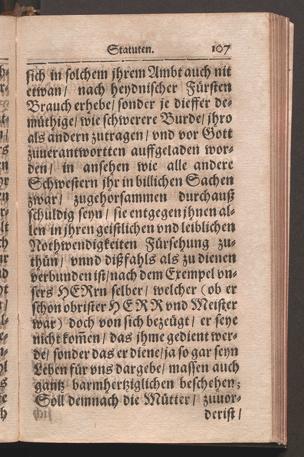 Statuten. 107
sich in solchem jhrem Ambt auch nit
etwan / nach heydnischer Fürsten
Brauch erhebe / sonder je dieffer de-
müthige / wie schwerere Burde / jhro
als andern zutragen / vnd vor Gott
zuuerantwortten auffgeladen wor-
den / in ansehen wie alle andere
Schwestern jhr in billichen Sachen
zwar / zugehorsammen durchauß
schuldig seyn / sie entgegen jhnen al-
len in jhren geistlichen vnd leiblichen
Nothwendigkeiten Fürsehung zu-
thün / vnnd dißfahls als zu dienen
verbunden ist / nach dem Exempel vn-
sers HERrn selber / welcher (ob er
schon obrister HERR vnd Meister
war) doch von sich bezeügt / er seye
nicht kom̄en / das jhme gedient wer-
de / sonder das er diene / ja so gar seyn
Leben für vns dargebe / massen auch
gantz barmhertziglichen beschehen;
Soll demnach die Mütter / zuuor-
derist /